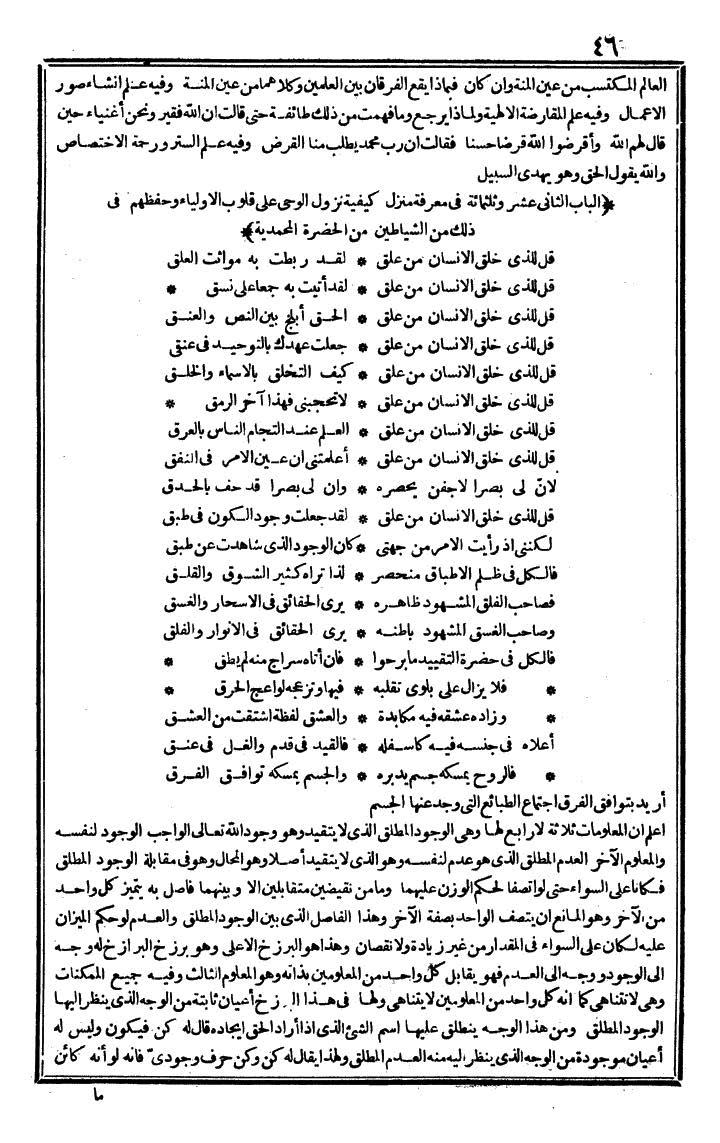 ٤٦
العالم المكتسب من عين المنة وان كان فبماذا يقع الفرقان بين العلمين وكلاهما من عين المنة وفيه علم انشاء صور
الاعمال وفيه علم المقارضة الالهية ولماذا يرجع وما فهمت من ذلك طائفة حتى قالت ان الله فقير ونحن أغنياء حين
قال لهم الله وأقرضوا الله قرضا حسنا فقالت ان رب محمد يطلب منا القرض وفيه علم الستر ورحمة الاختصاص
والله يقول الحق وهو يهدى السبيل
﴿الباب الثانى عشر وثلثمائة فى معرفة منزل كيفية نزول الوحى على قلوب الاولياء وحفظهم فى
ذلك من الشياطين من الحضرة المحمدية﴾
قل للذى خلق الانسان من علق * لقد ربطت به موائت العلق
قل للذى خلق الانسان من علق * لقد أتيت به جمعا على نسق *
قل للذى خلق الانسان من علق * الحق أبلج بين النص والعنق
قل للذى خلق الانسان من علق * جعلت عهدك بالتوحيد فى عنقى
قل للذى خلق الانسان من علق * كيف التخلق بالاسماء والخلق
قل للذى خلق الانسان من علق * لا تحجبنى فهذا آخر الرمق *
قل للذى خلق الانسان من علق * العلم عند التجام الناس بالعرق
قل للذى خلق الانسان من علق * أعلمتنى ان عين الامر فى النفق
لانّ لى بصرا لا جفن يحصره * وان لى بصرا قد حف بالحدق
قل للذى خلق الانسان من علق * لقد جعلت وجود الكون فى طبق
لكننى اذ رأيت الامر من جهتى * كان الوجود الذى شاهدت عن طبق
فالكل فى ظلم الاطباق منحصر * لذا تراه كثير الشوق والقلق
فصاحب الفلق المشهود ظاهره * يرى الحقائق فى الاسحار والغسق
وصاحب الغسق المشهود باطنه * يرى الحقائق فى الانوار والفلق
فالكل فى حضرة التقييد ما برحوا * فان أتاه سراج منه لم يطق *
* فلا يزال على بلوى تقلبه * فيها وتزعجه لواعج الحرق *
* وزاده عشقه فيه مكابدة * والعشق لفظة اشتقت من العشق
أعلاه فى جنسه فيه كاسفله * فالقيد فى قدم والغل فى عنق
* فالروح يمسكه جسم يدبره * والجسم يمسكه توافق الفرق
أريد بتوافق الفرق اجتماع الطبائع التى وجد عنها الجسم
اعلم ان المعلومات ثلاثة لا رابع لها وهى الوجود المطلق الذى لا يتقيد وهو وجود الله تعالى الواجب الوجود لنفسه
والمعلوم الآخر العدم المطلق الذى هو عدم لنفسه وهو الذى لا يتقيد أصلا وهو المحال وهو فى مقابلة الوجود المطلق
فكانا على السواء حتى لو اتصفا لحكم الوزن عليهما وما من نقيضين متقابلين الا وبينهما فاصل به يتميز كل واحد
من الآخر وهو المانع ان يتصف الواحد بصفة الآخر وهذا الفاصل الذى بين الوجود المطلق والعدم لو حكم الميزان
عليه لكان على السواء فى المقدار من غير زيادة ولا نقصان وهذا هو البرزخ الاعلى وهو برزخ البرازخ له وجه
الى الوجود ووجه الى العدم فهو يقابل كل واحد من المعلومين بذاته وهو المعلوم الثالث وفيه جميع الممكنات
وهى لا تتناهى كما انه كل واحد من المعلومين لا يتناهى ولها فى هذا البرزخ أعيان ثابتة من الوجه الذى ينظر اليها
الوجود المطلق ومن هذا الوجه ينطلق عليها اسم الشئ الذى اذا أراد الحق ايجاده قال له كن فيكون وليس له
أعيان موجودة من الوجه الذى ينظر اليه منه العدم المطلق ولهذا يقال له كن وكن حرف وجودىّ فانه لو أنه كائن
ما